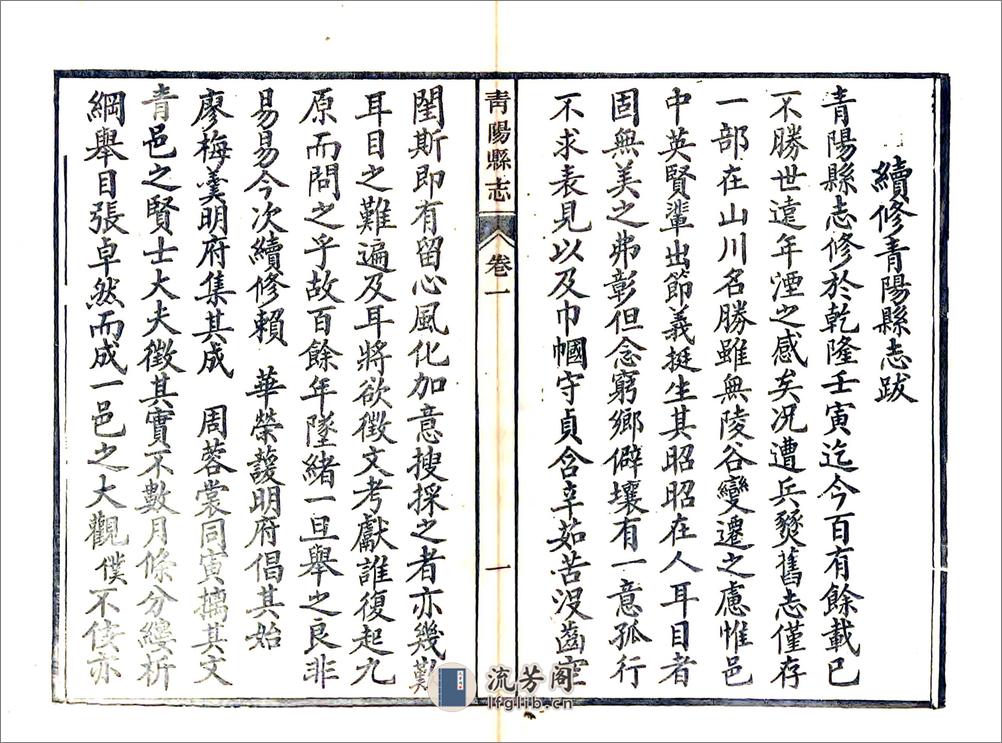 續修青陽縣志跋
青陽縣志修於乾隆壬寅迄今百有餘載已
不勝世遠年湮之感矣况遭兵燹舊志僅存
一部在山川名勝雖無陵谷變遷之慮惟邑
中英賢輩出節義挺生其昭昭在人耳目者
固無美之弗彰但念窮鄉僻壤有一意孤行
不求表見以及巾幗守貞含辛茹苦没齒窀
青陽縣志
卷一
一
閨斯即有留心風化加意搜採之者亦幾難
耳目之難遍及耳將欲徵文考獻誰復起九
原而問之乎故百餘年墜緒一旦舉之良非
易易今次續修賴 華榮護明府倡其始
廖梅羹明府集其成 周蓉裳同寅摛其文
青邑之賢士大夫徵其實不數月條分縷析
綱舉目張卓然而成一邑之大觀僕不佞亦
流芳閣
lfglib.cn